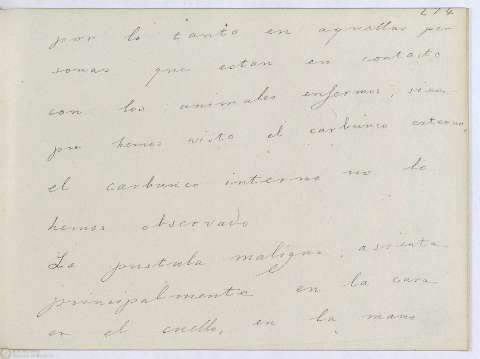 274
por lo tanto en aquellas per
sonas que estan en contacto
con los animales enfermos, siem
pre hemos visto el carbunco externo,
el carbunco interno no lo
hemos observado
La pustula maligna, asienta
principalmente en la cara
en el cuello, en la mano